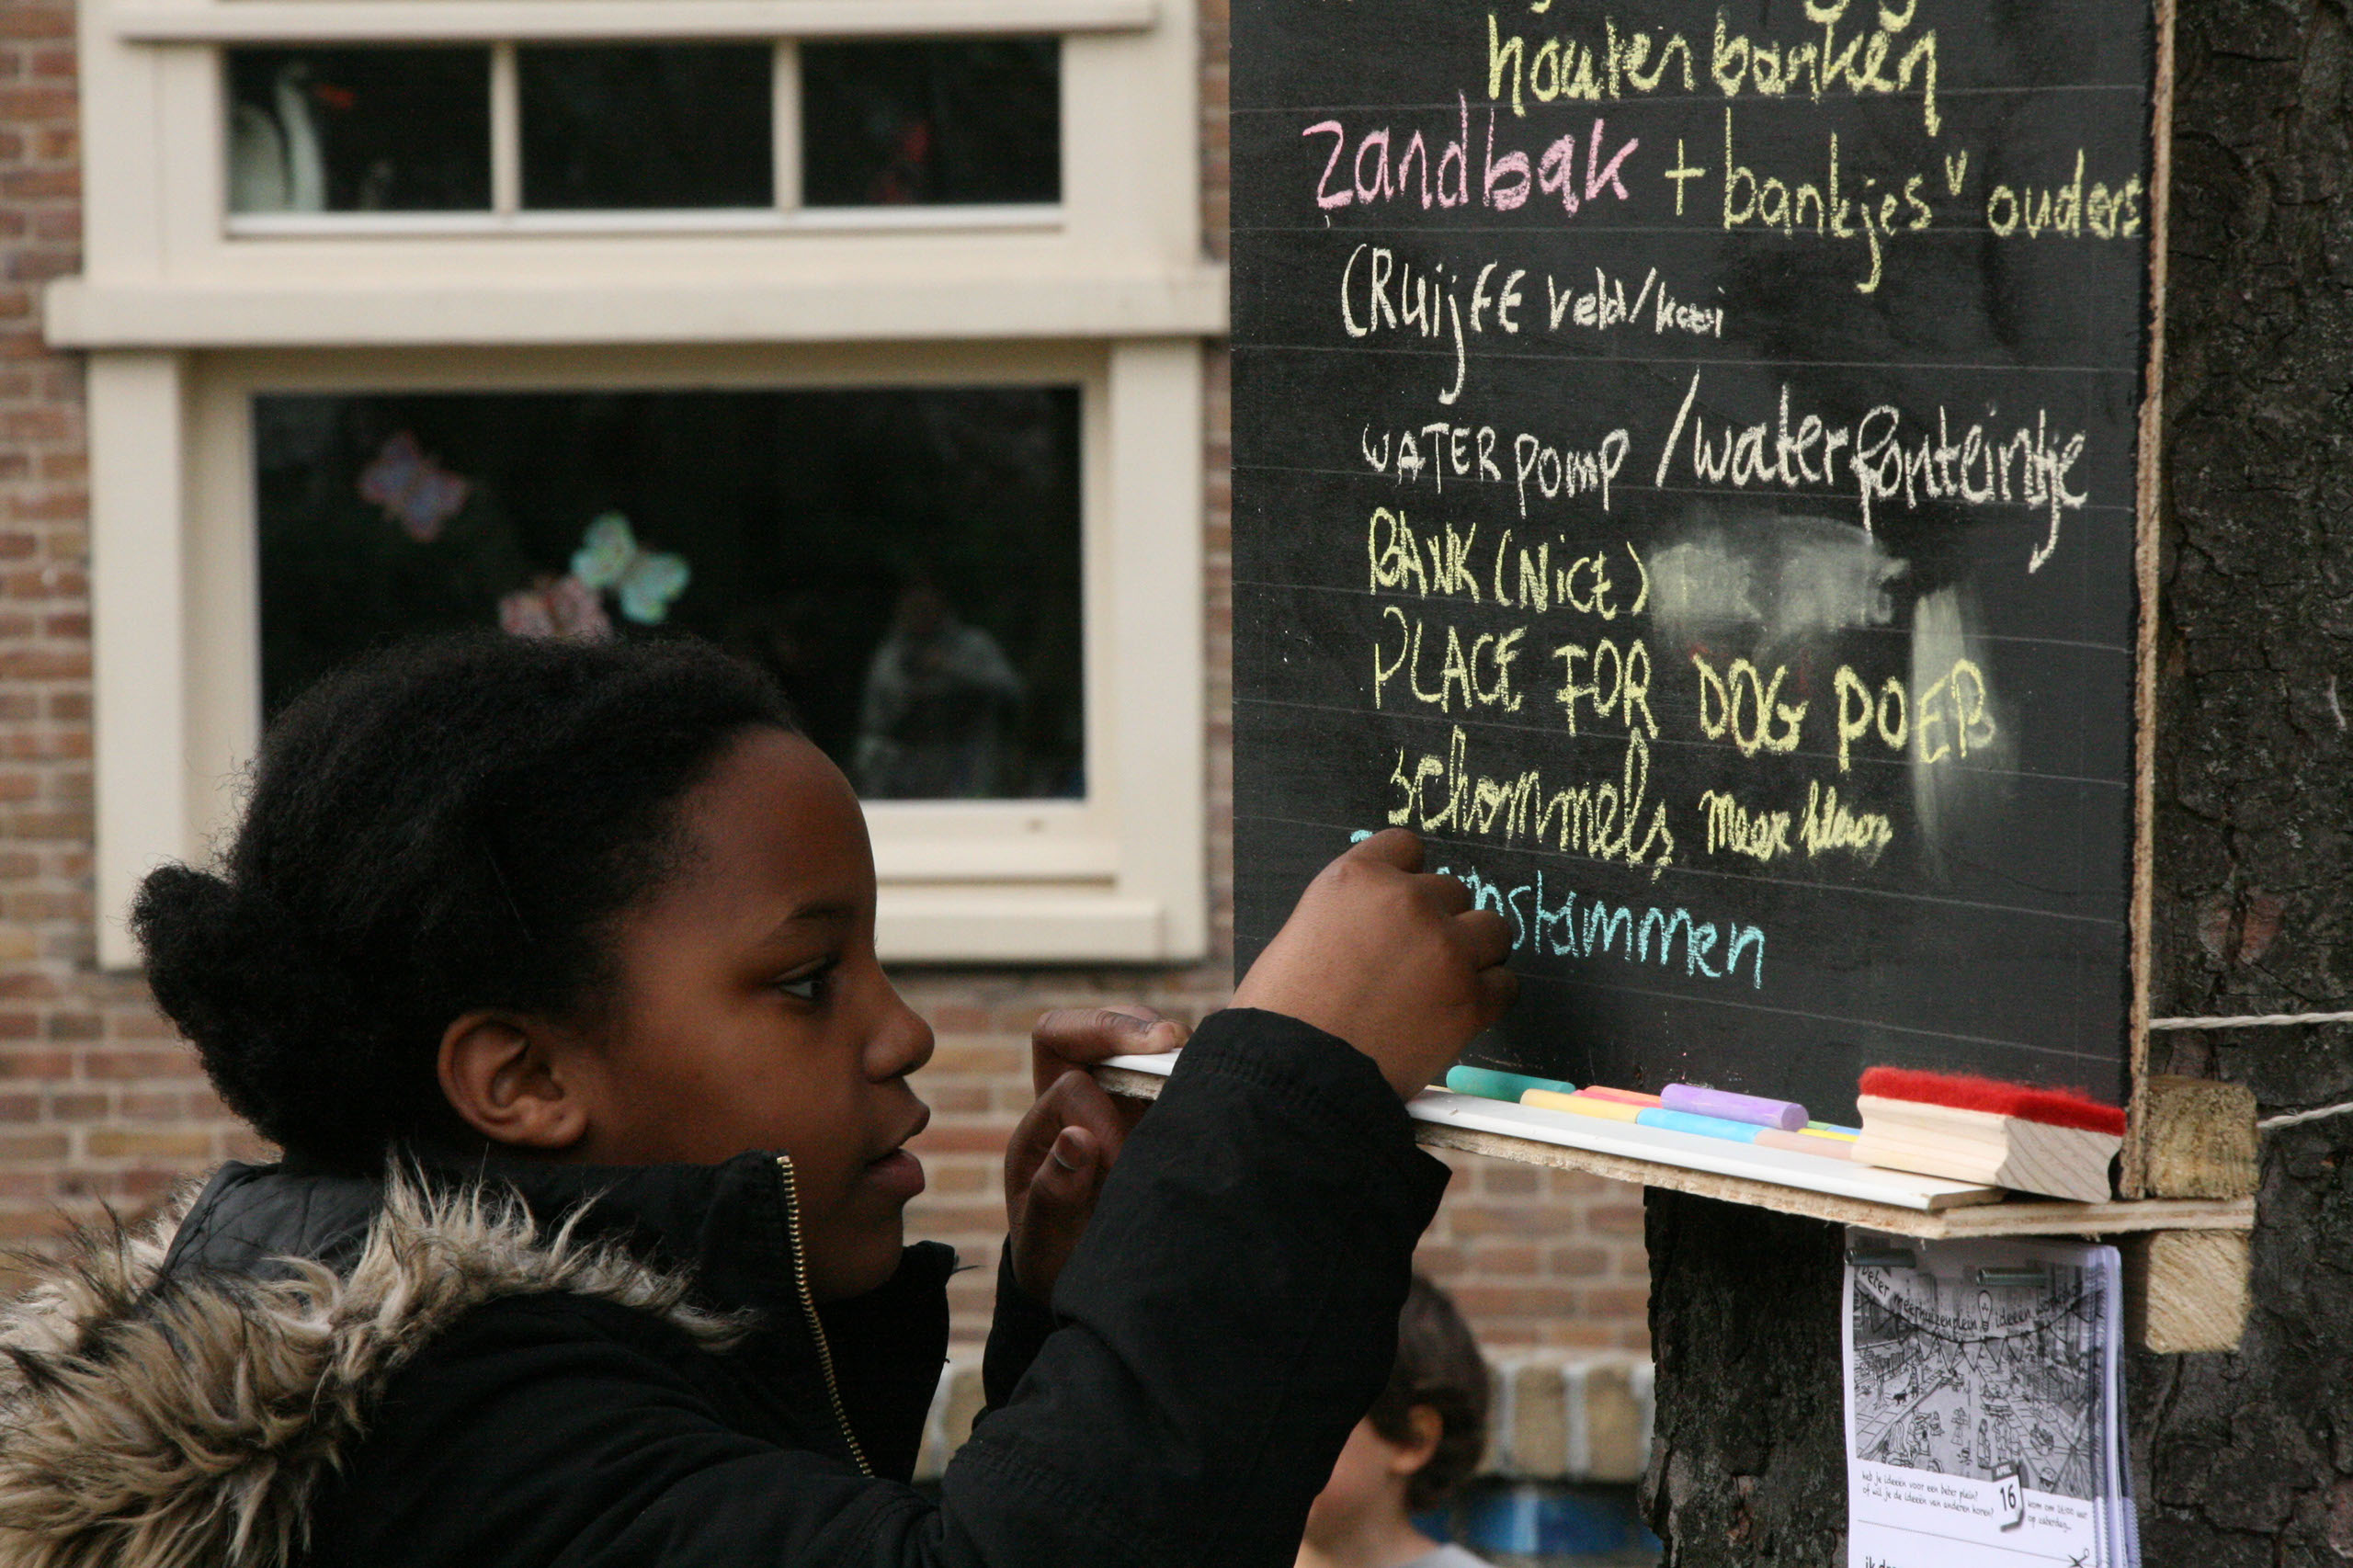 houten banken
zandbak + bankjes v ouders
CRuijFF veld/kooi
WATER POMP /waterfonteintje
BANK (NicE)
PLACE FOR DOG POEP
schommels meer kleur
mstammen
beter meerhuizenplein ideeën
heb je ideeën voor een beter plein?
of wil je de ideeën van anderen horen?
APRIL
16
kom om 16:00 uur
op zaterdag